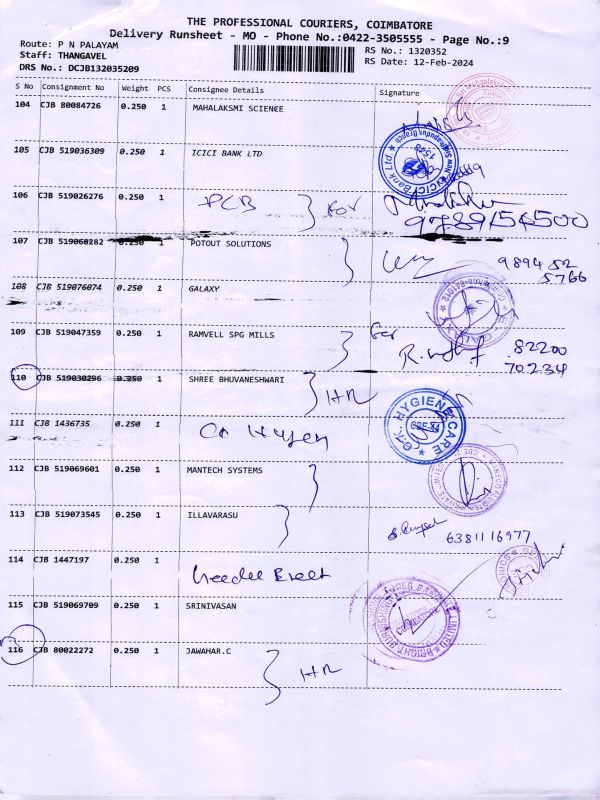 THE PROFESSIONAL COURIERS, COIMBATORE
Delivery Runsheet - MO - Phone No.:0422-3505555 - Page No.:9
Route: P N PALAYAM RS No.: 1320352
Staff: THANGAVEL RS Date: 12-Feb-2024
DRS No.: DCJB132035209
S No Consignment No Weight PCS Consignee Details Signature
104 CJB 80084726 0.250 1 MAHALAKSMI SCIENCE
105 CJB 519036309 0.250 1 ICICI BANK LTD
106 CJB 519026276 0.250 1 PCB For
9789156500
107 CJB 519060282 0.250 1 POTOUT SOLUTIONS
9894 52
5766
108 CJB 519076074 0.250 1 GALAXY
109 CJB 519047359 0.250 1 RAMVELL SPG MILLS For
82200
70234
110 CJB 519030296 0.250 1 SHREE BHUVANESHWARI HR
111 CJB 1436735 0.250 1
G.K. HYGIENE CARE
112 CJB 519069601 0.250 1 MANTECH SYSTEMS
113 CJB 519073545 0.250 1 ILLAVARASU
6381116977
114 CJB 1447197 0.250 1
115 CJB 519069709 0.250 1 SRINIVASAN
116 CJB 80022272 0.250 1 JAWAHAR.C HR